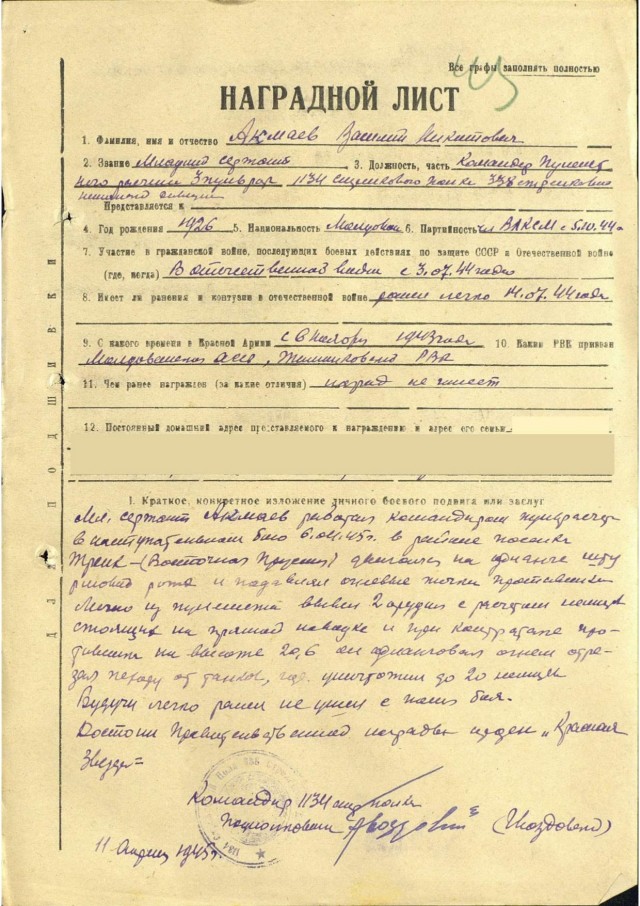 Все графы заполнять полностью
НАГРАДНОЙ ЛИСТ
1. Фамилия, имя и отчество Акмаев Василий Никитович
2. Звание Младший сержант 3. Должность, часть Командир пулемет
ного расчета 1134 стрелкового полка 338 стрелковой
дивизии
Представляется к
4. Год рождения 1926 5. Национальность 6. Партийность чл ВЛКСМ с 5.10.44г
7. Участие в гражданской войне, последующих боевых действиях по защите СССР и Отечественной войне
(где, когда) В отечественной войне с 3.07.44 года
8. Имеет ли ранения и контузии в отечественной войне ранен легко 14.07.44 года
9. С какого времени в Красной Армии с ноября 1943 года 10. Каким РВК призван
РВК
11. Чем ранее награжден (за какие отличия) наград не имеет
12. Постоянный домашний адрес представляемого к награждению и адрес его семьи
I. Краткое, конкретное изложение личного боевого подвига или заслуг
Мл. сержант Акмаев работая командиром пульрасчета
в наступательном бою 6.04.45г. в районе поселка
(Восточная Пруссия) двигался на фланге
роты и подавлял огневые точки противника
Лично из пулемета вывел 2 орудия с расчетом немцев
стоящих на прямой наводке и при контратаке про
тивника на высоте 20,6 он фланговым огнем отре
зал пехоту от танков, где уничтожил до 20 немцев
Будучи легко ранен не ушел с поля боя.
Достоин Правительственной награды орден „Красная
Звезда"
Командир 1134 стр. полка
Подполковник
11 Апреля 1945г.
ДЛЯ ПОДШИВКИ